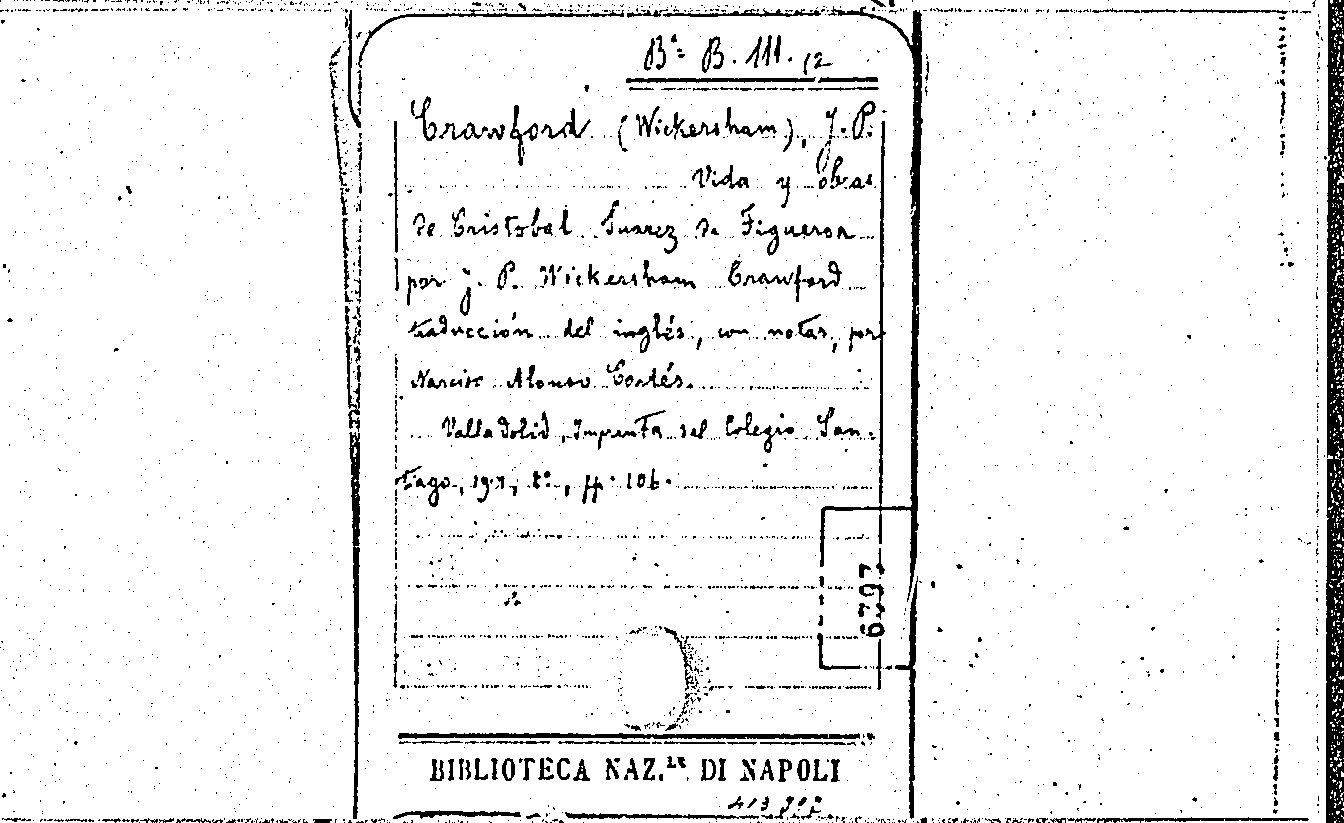 Bª B. 111. 12
Crawford (Wickersham), J. P.
Vida y obras
de Cristobal Suarez de Figueroa
por J. P. Wickersham Crawford
traducción del inglés, con notas, por
Narciso Alonso Cortés.
Valladolid, Imprenta del Colegio San-
tago, 8º, pp. 106.
6797
BIBLIOTECA NAZ.LE DI NAPOLI